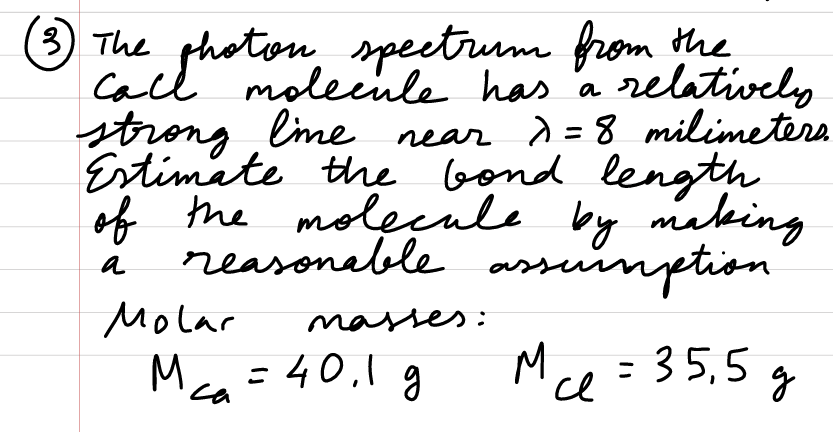 (3) The photon spectrum from the
CaCl molecule has a relatively
strong line near λ = 8 milimeters.
Estimate the bond length
of the molecule by making
a reasonable assumption
Molar masses:
M_Ca = 40.1 g M_Cl = 35.5 g